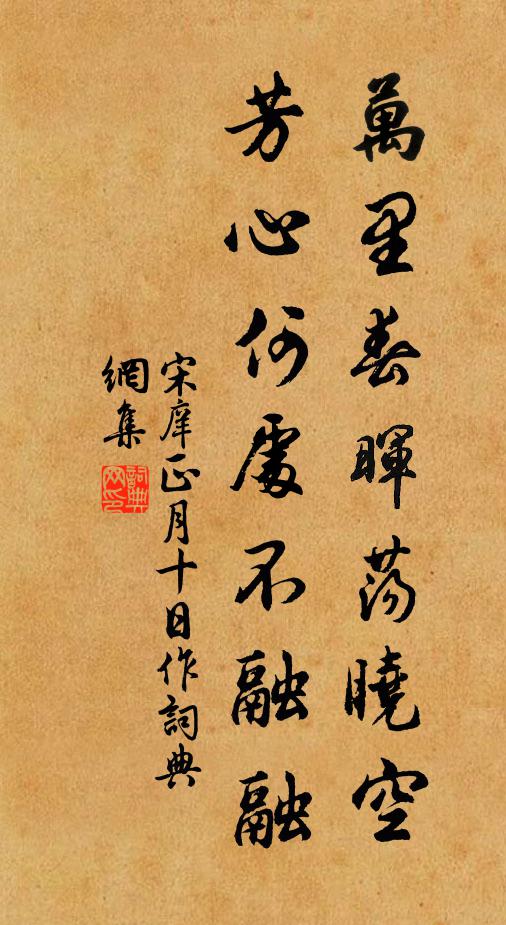 萬里春暉蕩曉空
芳心何處不融融
宋庠正月十日作詞典
網集
詞典
网印